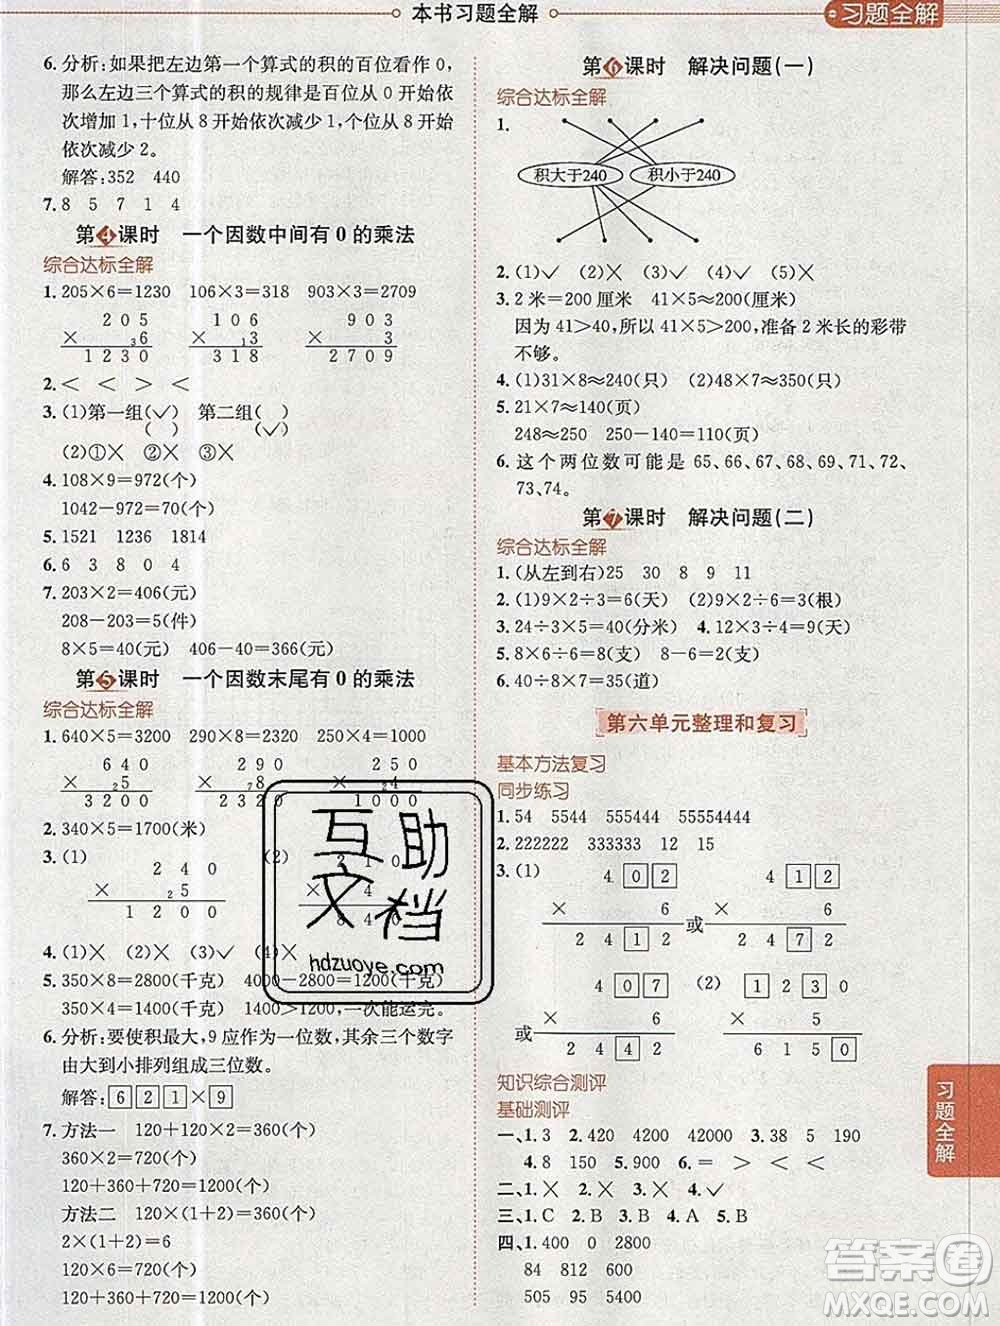 本书习题全解
习题全解
6. 分析:如果把左边第一个算式的积的百位看作 0,
那么左边三个算式的积的规律是百位从 0 开始依
次增加 1,十位从 8 开始依次减少 1,个位从 8 开始
依次减少 2。
解答:352 440
7. 8 5 7 1 4
第4课时 一个因数中间有 0 的乘法
综合达标全解
1. 205×6=1230 106×3=318 903×3=2709
2 0 5 1 0 6 9 0 3
× 3 6 × 1 3 × 3
1 2 3 0 3 1 8 2 7 0 9
2. < < > <
3. (1)第一组(✓) 第二组( )
( ) (✓)
(2)①× ②× ③×
4. 108×9=972(个)
1042-972=70(个)
5. 1521 1236 1814
6. 6 3 8 0 4
7. 203×2=406(元)
208-203=5(件)
8×5=40(元) 406-40=366(元)
第5课时 一个因数末尾有 0 的乘法
综合达标全解
1. 640×5=3200 290×8=2320 250×4=1000
6 4 0 2 9 0 2 5 0
× 2 5 × 7 8 × 2 4
3 2 0 0 2 3 2 0 1 0 0 0
2. 340×5=1700(米)
3. (1) (2)
2 4 0 2 1 0
× 2 5 × 4
1 2 0 0 8 4 0
4. (1)× (2)× (3)✓ (4)×
5. 350×8=2800(千克) 4000-2800=1200(千克)
350×4=1400(千克) 1400>1200,一次能运完。
6. 分析:要使积最大,9 应作为一位数,其余三个数字
由大到小排列组成三位数。
解答:6 2 1×9
7. 方法一 120+120×2=360(个)
360×2=720(个)
120+360+720=1200(个)
方法二 120×(1+2)=360(个)
2×(1+2)=6
120×6=720(个)
120+360+720=1200(个)
第6课时 解决问题(一)
综合达标全解
1.
积大于240 积小于240
2. (1)✓ (2)× (3)× (4)✓ (5)×
3. 2 米=200 厘米 41×5≈200(厘米)
因为 41>40,所以 41×5>200,准备 2 米长的彩带
不够。
4. (1)31×8≈240(只) (2)48×7≈350(只)
5. 21×7≈140(页)
248≈250 250-140=110(页)
6. 这个两位数可能是 65、66、67、68、69、71、72、
73、74。
第7课时 解决问题(二)
综合达标全解
1. (从左到右)25 30 8 9 11
2. (1)9×2÷3=6(天) (2)9×2÷6=3(根)
3. 24÷3×5=40(分米) 4. 12×3÷4=9(元)
5. 8×6÷8=6(支)
6. 40÷8×7=35(道)
第六单元整理和复习
基本方法复习
同步练习
1. 54 5544 555444 55554444
2. 222222 333333 12 15
3. (1) 4 0 2 4 1 2
× 6 或 × 6
2 4 1 2 2 4 7 2
4 0 7 (2) 1 2 3 0
或 × 6 × 5
2 4 4 2 6 1 5 0
知识综合测评
基础测评
一、1. 3 2. 420 4200 42000 3. 38 5 190
4. 8 150 5. 900 6. = > < <
二、1. × 2. × 3. × 4. ✓
三、1. C 2. B 3. B 4. A 5. B
四、1. 400 0 2800
84 812 600
505 95 5400
习题全解
互助文档
hdzuoye.com
答案圈
MXQE.COM